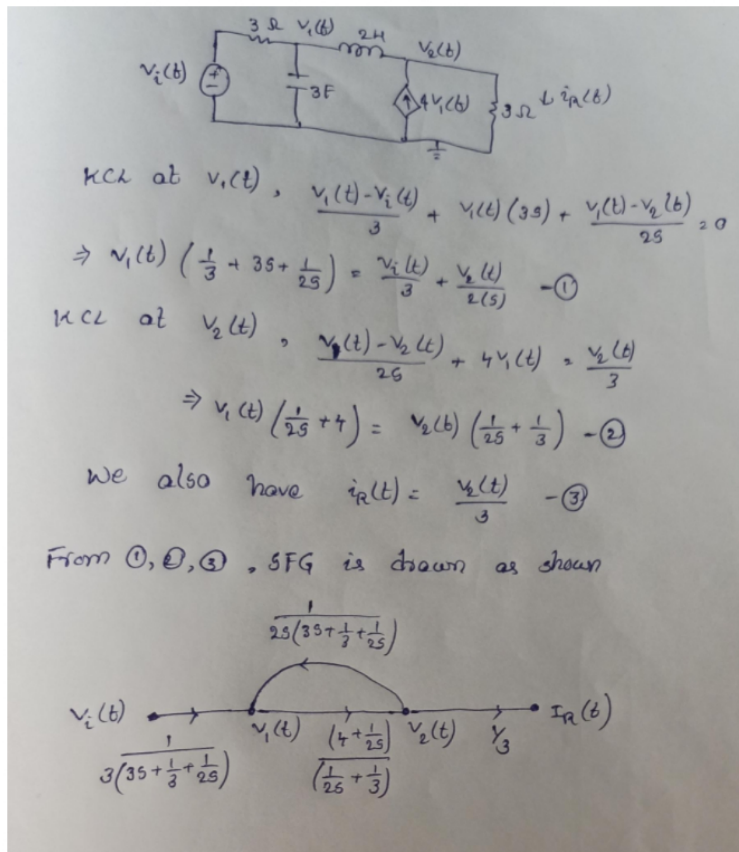 3 Ω V₁(t) 2H V₂(t)
Vᵢ(t) + − 3F 4V₁(t) 3Ω ↓ i_R(t)
KCL at V₁(t), (V₁(t)-Vᵢ(t))/3 + V₁(t)(3S) + (V₁(t)-V₂(t))/2S = 0
⇒ V₁(t) (1/3 + 3S + 1/2S) = Vᵢ(t)/3 + V₂(t)/2(S) -①
KCL at V₂(t), (V₁(t)-V₂(t))/2S + 4V₁(t) = V₂(t)/3
⇒ V₁(t) (1/2S + 4) = V₂(t) (1/2S + 1/3) -②
We also have i_R(t) = V₂(t)/3 -③
From ①, ②, ③, SFG is drawn as shown
1/2S(3S+1/3+1/2S)
Vᵢ(t) V₁(t) V₂(t) 1/3 I_R(t)
1/3(3S+1/3+1/2S) (4+1/2S)/(1/2S+1/3)